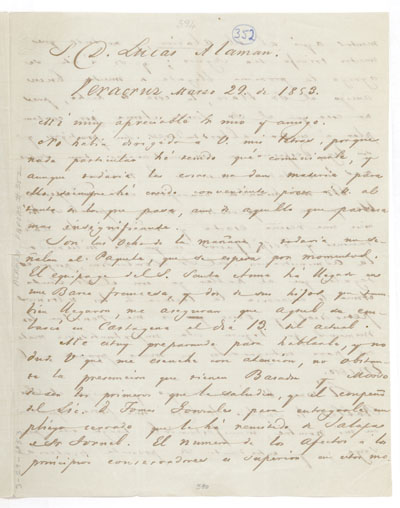 352
S. D. Lucas Alaman.
Veracruz Marzo 29. de 1853.
Mi muy apreciable S. mio y amigo.
No habia dirigido a V. mis letras, porque
nada particular há tenido que comunicarle, y
aunque todavia las cosas no dan materia para
ello, siempre há creido conveniente poner a V. al
tanto de lo que pasa, aun de aquello que parezca
mas insignificante.
Son las Ocho de la mañana y todavia no se
señala el Paquete, que se espera por momentos.
El equipage del S. Santa Anna há llegado en
una Barca francesa, y dos de sus hijos que tam
bien llegaron, me aseguran que aquel se em
barcó en Cartagena el dia 12. del actual.
Me estoy preparando para hablarle, y no
dudo V. que me escuche con atencion, no obstan
te la presuncion que tienen Basadre y
de ser los primeros que le saluden, y el empeño
del Lic. D. Tomas Gonzales, para entregarle un
pliego cerrado que le há remitido de Jalapa
el Sr Tornel. El numero de los afectos a los
principios conservadores es superior en estos mo